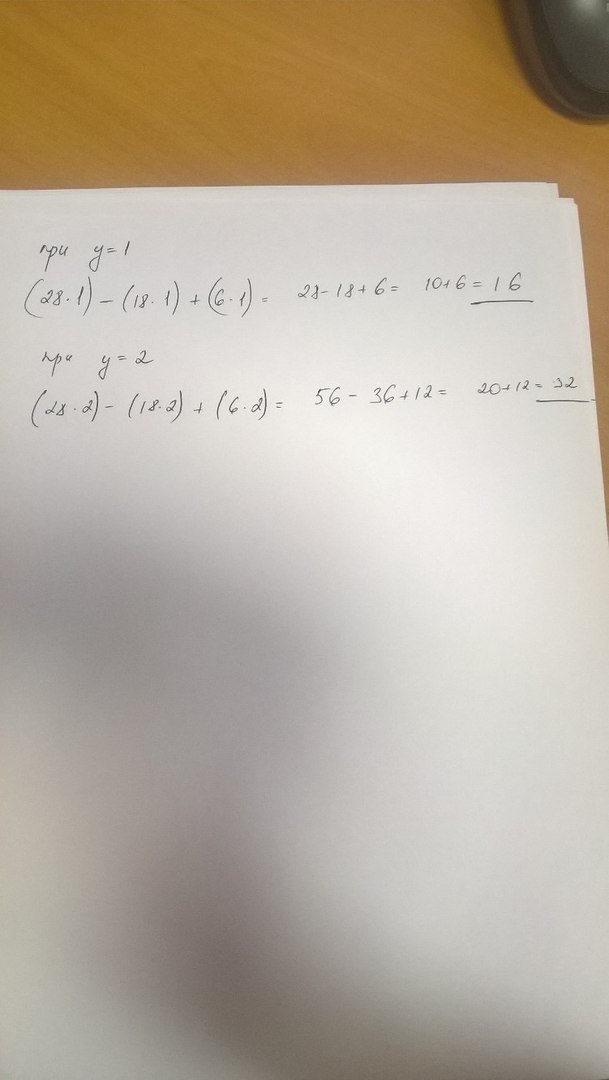 при y=1
(28·1) – (18·1) + (6·1) = 28-18+6= 10+6=16
при y=2
(28·2) – (18·2) + (6·2) = 56-36+12= 20+12=32